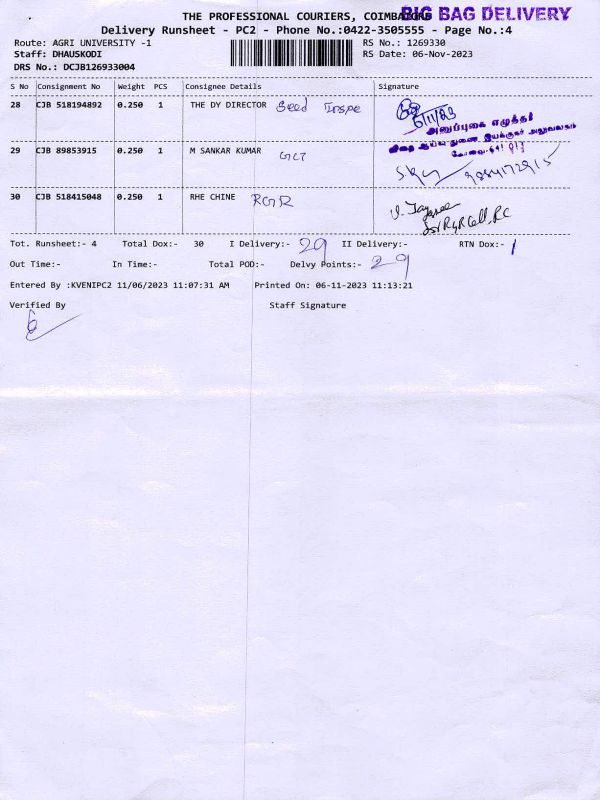 THE PROFESSIONAL COURIERS, COIMBATORE
BIG BAG DELIVERY
Delivery Runsheet - PC2 - Phone No.:0422-3505555 - Page No.:4
Route: AGRI UNIVERSITY -1
RS No.: 1269330
Staff: DHAUSKODI
RS Date: 06-Nov-2023
DRS No.: DCJB126933004
S No Consignment No Weight PCS Consignee Details Signature
28 CJB 518194892 0.250 1 THE DY DIRECTOR Seed Inspe
6/11/23
அனுப்புகை எழுத்தர்
விதை ஆய்வு துணை இயக்குநர் அலுவலகம்
கோவை-641 013
29 CJB 89853915 0.250 1 M SANKAR KUMAR GCT
30 CJB 518415048 0.250 1 RHE CHINE RGR
Tot. Runsheet:- 4 Total Dox:- 30 I Delivery:- 29 II Delivery:- RTN Dox:- 1
Out Time:- In Time:- Total POD:- Delvy Points:- 29
Entered By :KVENIPC2 11/06/2023 11:07:31 AM Printed On: 06-11-2023 11:13:21
Verified By Staff Signature